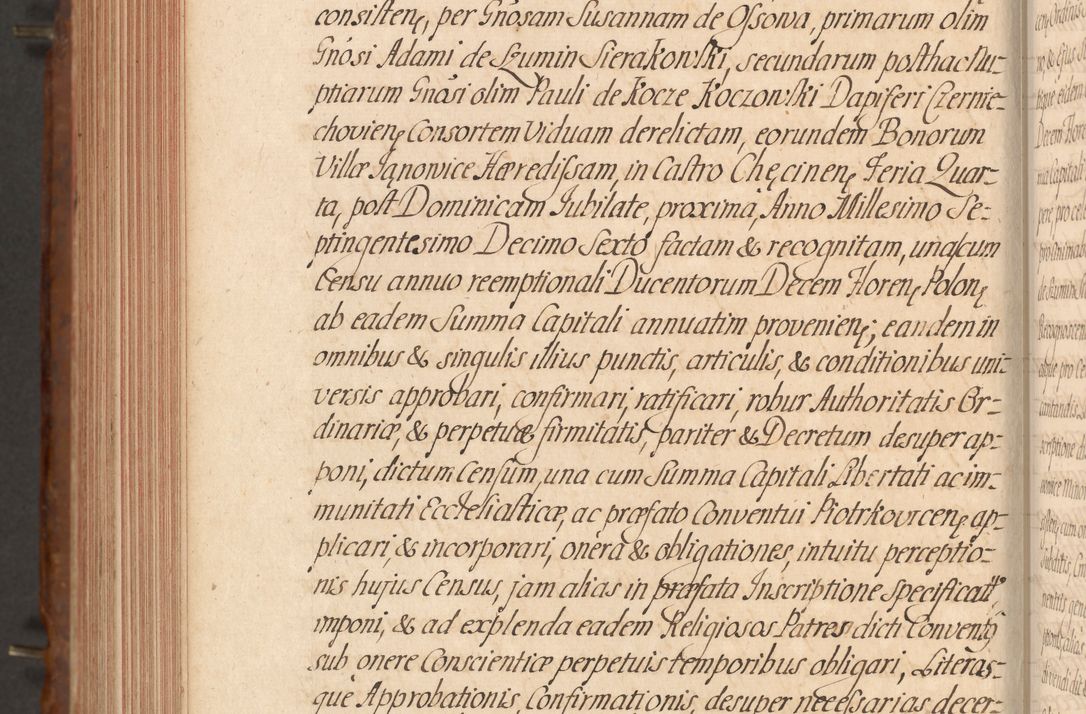 consistenę, per Gnosam Susannam de Ossowa, primarum olim
Gnosi Adami de Szumin Sierakowski, secundarum posthac Nu-
ptiarum Gnosi olim Pauli de Kocze Koczowski Dapiferi Czernie-
chovienę Consortem Viduam derelictam, eorundem Bonorum
Villæ Janowice Hæredissam, in Castro Chęcinenę Feria Quar-
ta, post Dominicam Jubilate, proxima, Anno Millesimo Se-
ptingentesimo Decimo Sexto factam & recognitam, una cum
Censu annuo reemptionali Ducentorum Decem Florenę Polonę
ab eadem Summa Capitali annuatim provenienę; eandem in
omnibus & singulis illius punctis, articulis, & conditionibus uni-
versis approbari, confirmari, ratificari, robur Authoritatis Or-
dinariæ, & perpetuæ firmitatis, pariter & Decretum desuper ap-
poni, dictum Censum, una cum Summa Capitali Libertati ac im-
munitati Ecclesiasticæ, ac præfato Conventui Piotrkovicenę ap-
plicari, & incorporari, onera & obligationes, intuitu perceptio-
nis hujus Census, jam alias in præfata Inscriptione specificatt
imponi, & ad explenda eadem Religiosos Patres dicti Conventq
sub onere Conscientiæ perpetuis temporibus obligari, Literas-
que Approbationis, Confirmationis, desuper necessarias decer-